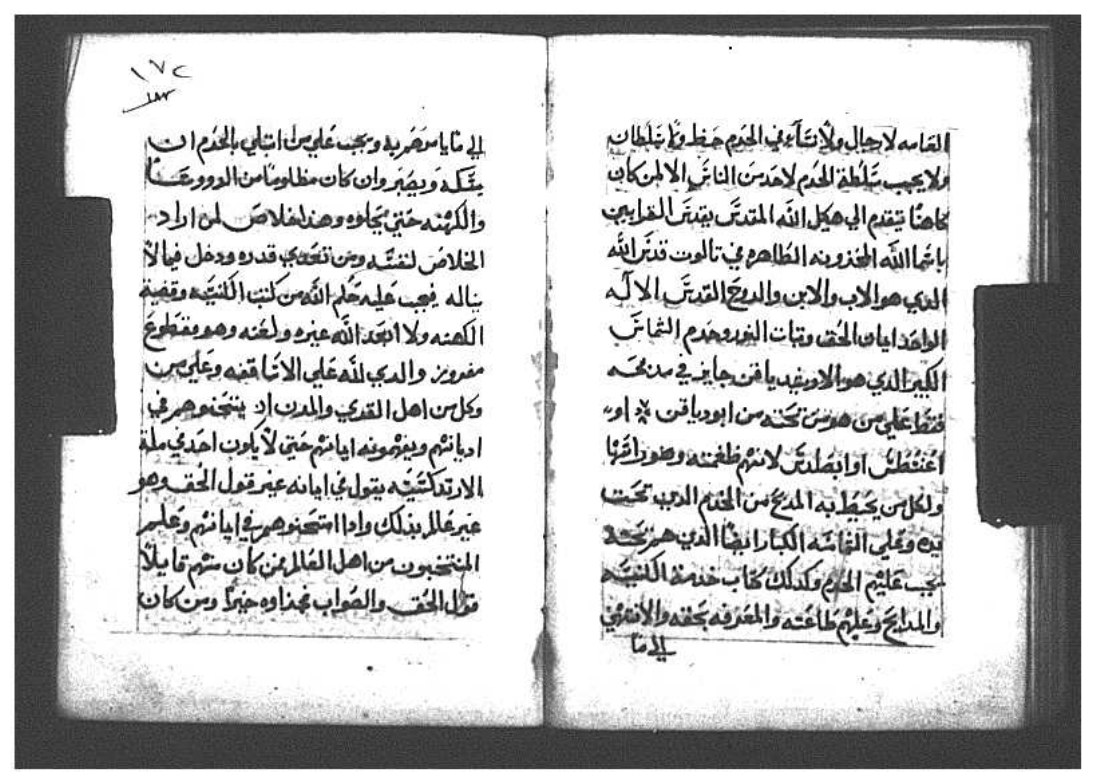 العامه لا رجال ولا نساء في الحرم حظ ولا سلطان
ولا يجب سلطة الحرم لاحد من الناس الا لمن كان
كاهنًا يتقدم الي هيكل الله المقدس يقدس القرابين
باسما الله المخزونه الطاهره في تالوت قدس الله
الذي هو الاب والابن والروح القدس الاله
الواحد ايمان الحق وتبات النور وحرم الشماس
الكبير الذي هو الاوبفيد يافن جايز في مدبحه
فقط علي من هو من تحته من ابودياقن او
اغنسطس او ابصلدس لانهم طغمته وهو راسها
ولكل من يحيط به المدبح من الخدم الدين تحت
يده وعلي الشمامسه الكبار ايضًا الذين هم تحته
يجب عليهم الحرم وكدلك كتاب خدمة الكنيسه
والمدابح وعليهم طاعته والمعرفه بحقه والانتهي
الي ما
١٧٢
الي ما يامرهم به ويجب علي من ابتلي بالحرم ان
يتكه ويصبر وان كان مظلومًا من الرووسا
والكهنه حتي يحلوه وهذا خلاص لمن اراد
الخلاص لنفسه ومن تعدي قدره ودخل فيما لا
يناله فيجب عليه حكم الله من كتب الكنيسه وقضية
الكهنه ولا ابعد الله غيره ولعنه وهو مقطوع
مفروز والدي لله علي الاساقفه وعلي من
وكل من اهل القري والمدن ان يمتحنوهم في
اديانهم ويفهمونه ايمانهم حتي لا يكون احد في ملة
الارتدكسيه يقول في ايمانه غير قول الحق وهو
غير عالم بذلك وادا امتحنوهم في ايمانهم وعلمهم
المنتخبون من اهل العالم فمن كان منهم قايلاً
قول الحق والصواب فجذاوه خبرًا ومن كان